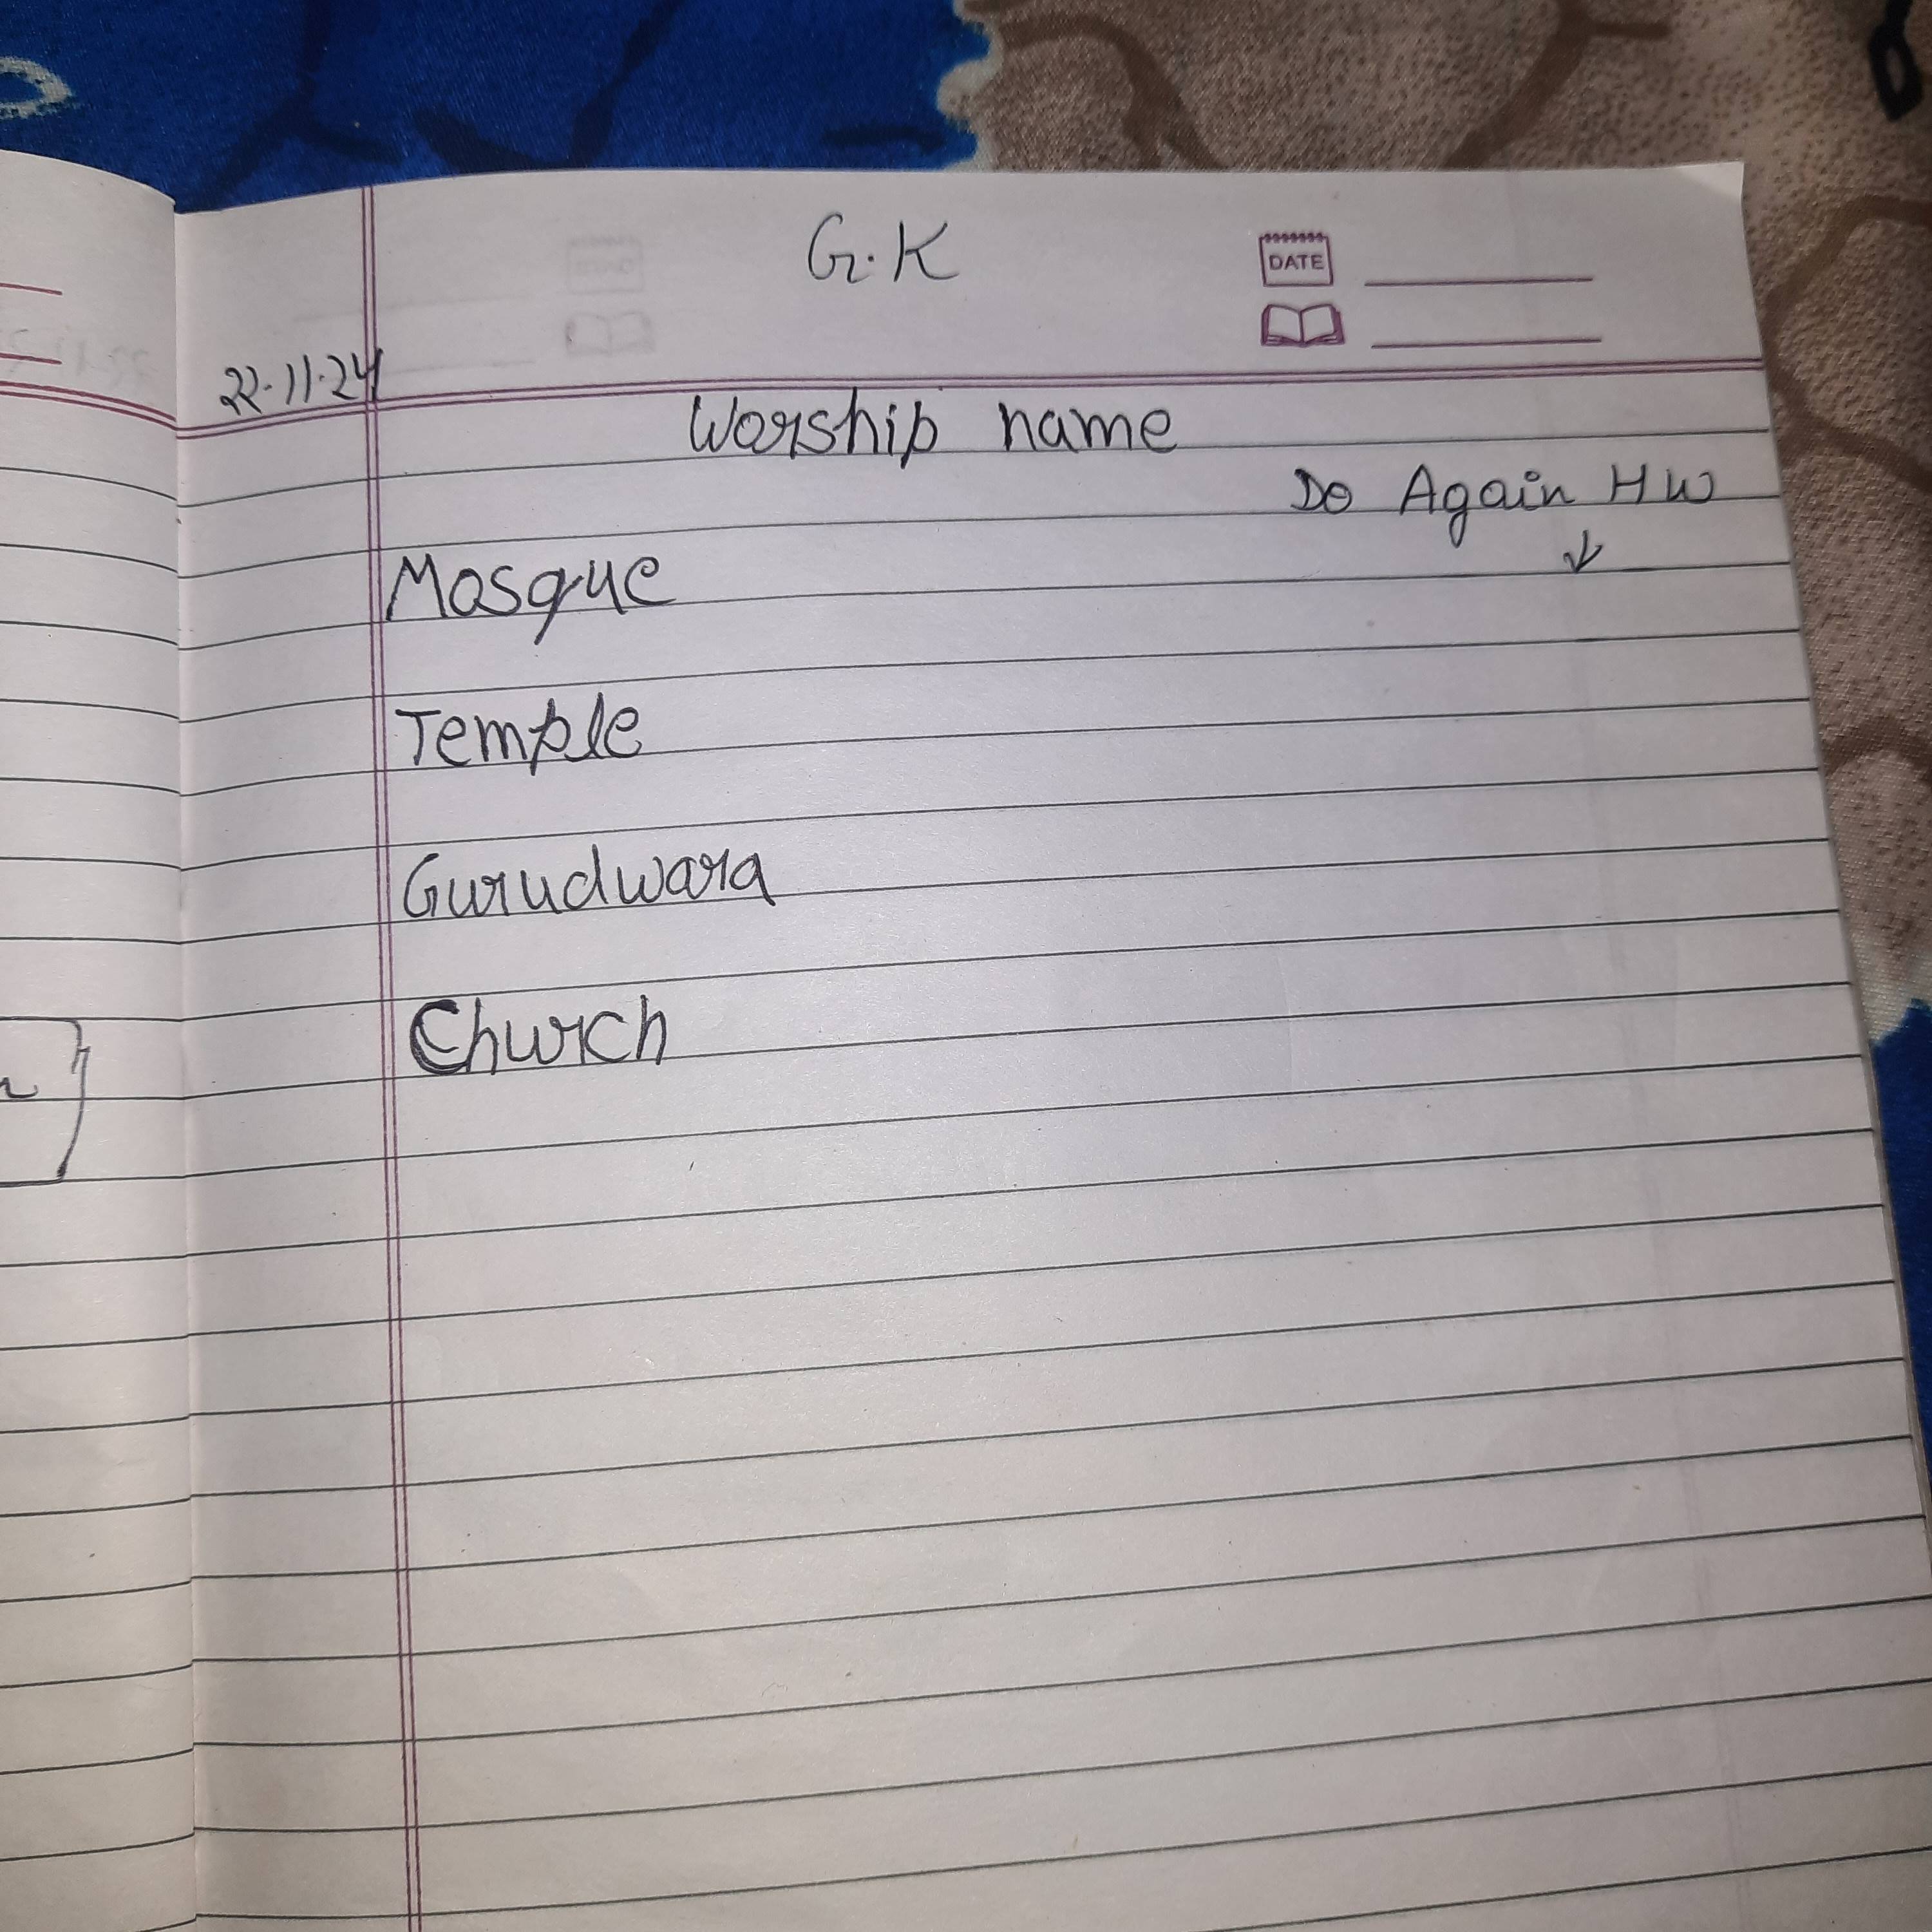 G.K
DATE
22.11.24
Worship name
Do Again HW
↓
Mosque
Temple
Gurudwara
Church